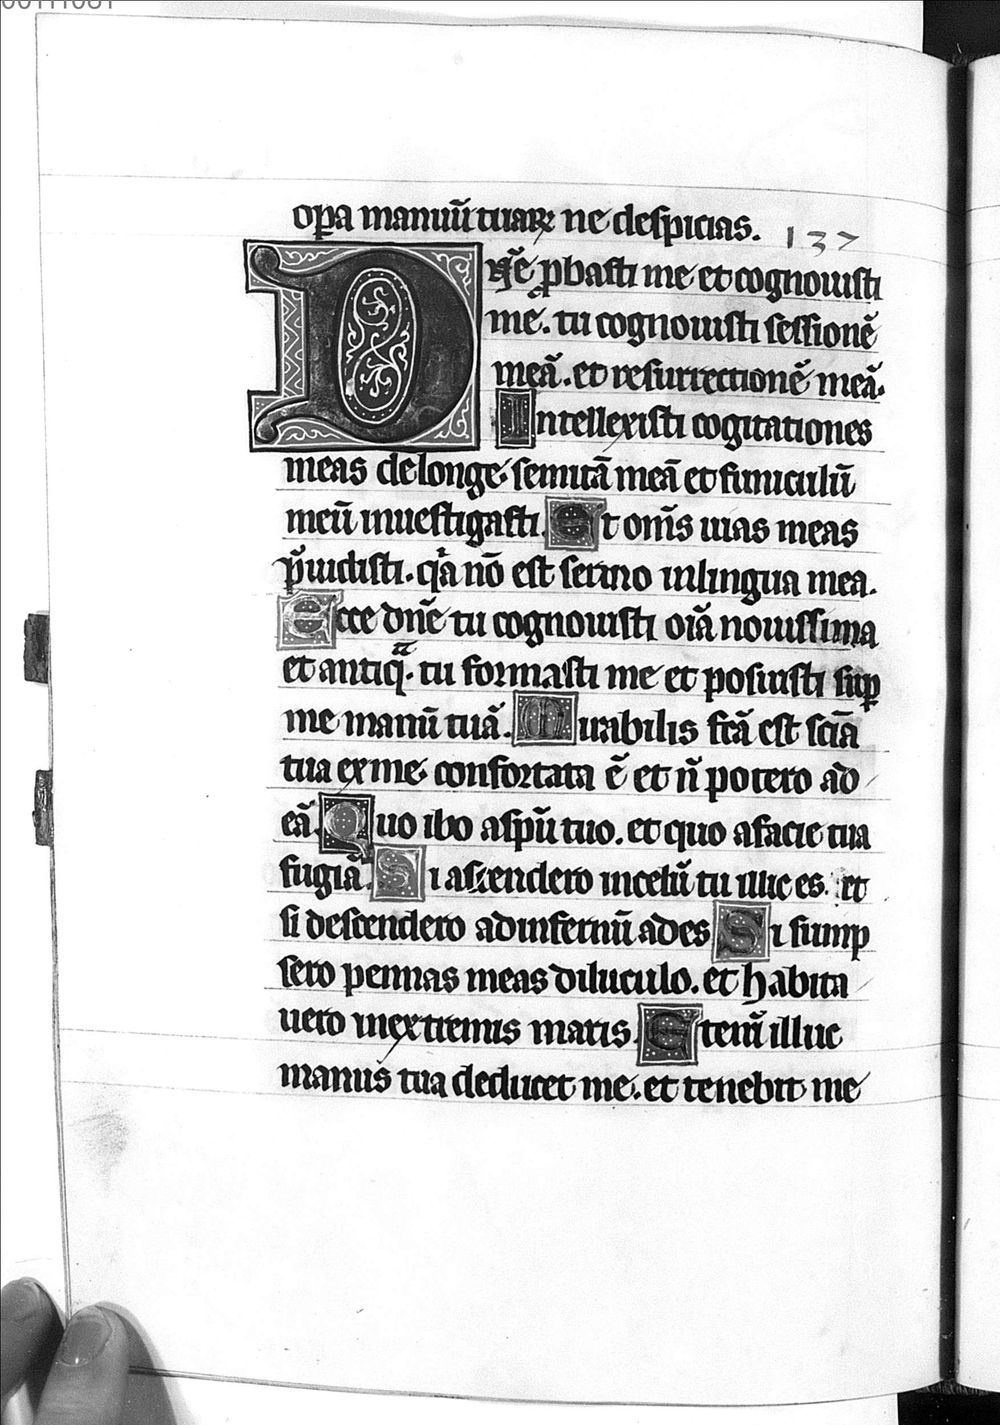 opa manuũ tuaꝝ ne despicias. 137
Dñe ꝓbasti me et cognouisti
me. tu cognouisti sessionẽ
meã. et resurrectionẽ meã.
Intellexisti cogitationes
meas de longe. semitã meã et funiculũ
meũ inuestigasti. Et om̃s uias meas
p̃uidisti. qͥa nõ est sermo inlingua mea.
Ecce dñe tu cognouisti oĩa nouissima
et antiq̃. tu formasti me et posuisti suꝑ
me manũ tuã. Mirabilis fc̃a est scĩa
tua ex me. confortata ẽ et ñ potero ad
eã. Quo ibo aspũ tuo. et quo afacie tua
fugiã. Si ascendero incelũ tu illic es. et
si descendero adinfernũ ades Si sump
sero pennas meas diluculo. et habita
uero inextremis maris. Eteni᷑ illuc
manus tua deducet me. et tenebit me